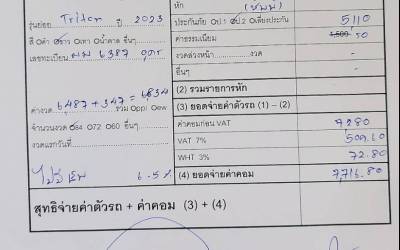 รุ่นย่อย Triton ปี 2023
สี ดำ ขาว เทา น้ำตาล อื่นๆ
เลขทะเบียน ผม 6387 อุดร
ค่างวด 6,487 + 347 = 6,834
รวม ppi ew
จำนวนงวด 84 72 60 อื่นๆ
งวดแรกวันที่
ไม่มี 6.5%
หัก
ประกันภัย ป1 ป2 เพียงประกัน 5110
ค่าธรรมเนียม 1,500 50
งวดล่วงหน้า งวด
อื่นๆ
(2) รวมรายการหัก
(3) ยอดจ่ายค่าตัวรถ (1) – (2)
ค่าคอมก่อน VAT 7280
VAT 7% 509.60
WHT 3% 72.80
(4) ยอดจ่ายค่าคอม 7,716.80
สุทธิจ่ายค่าตัวรถ + ค่าคอม (3) + (4)